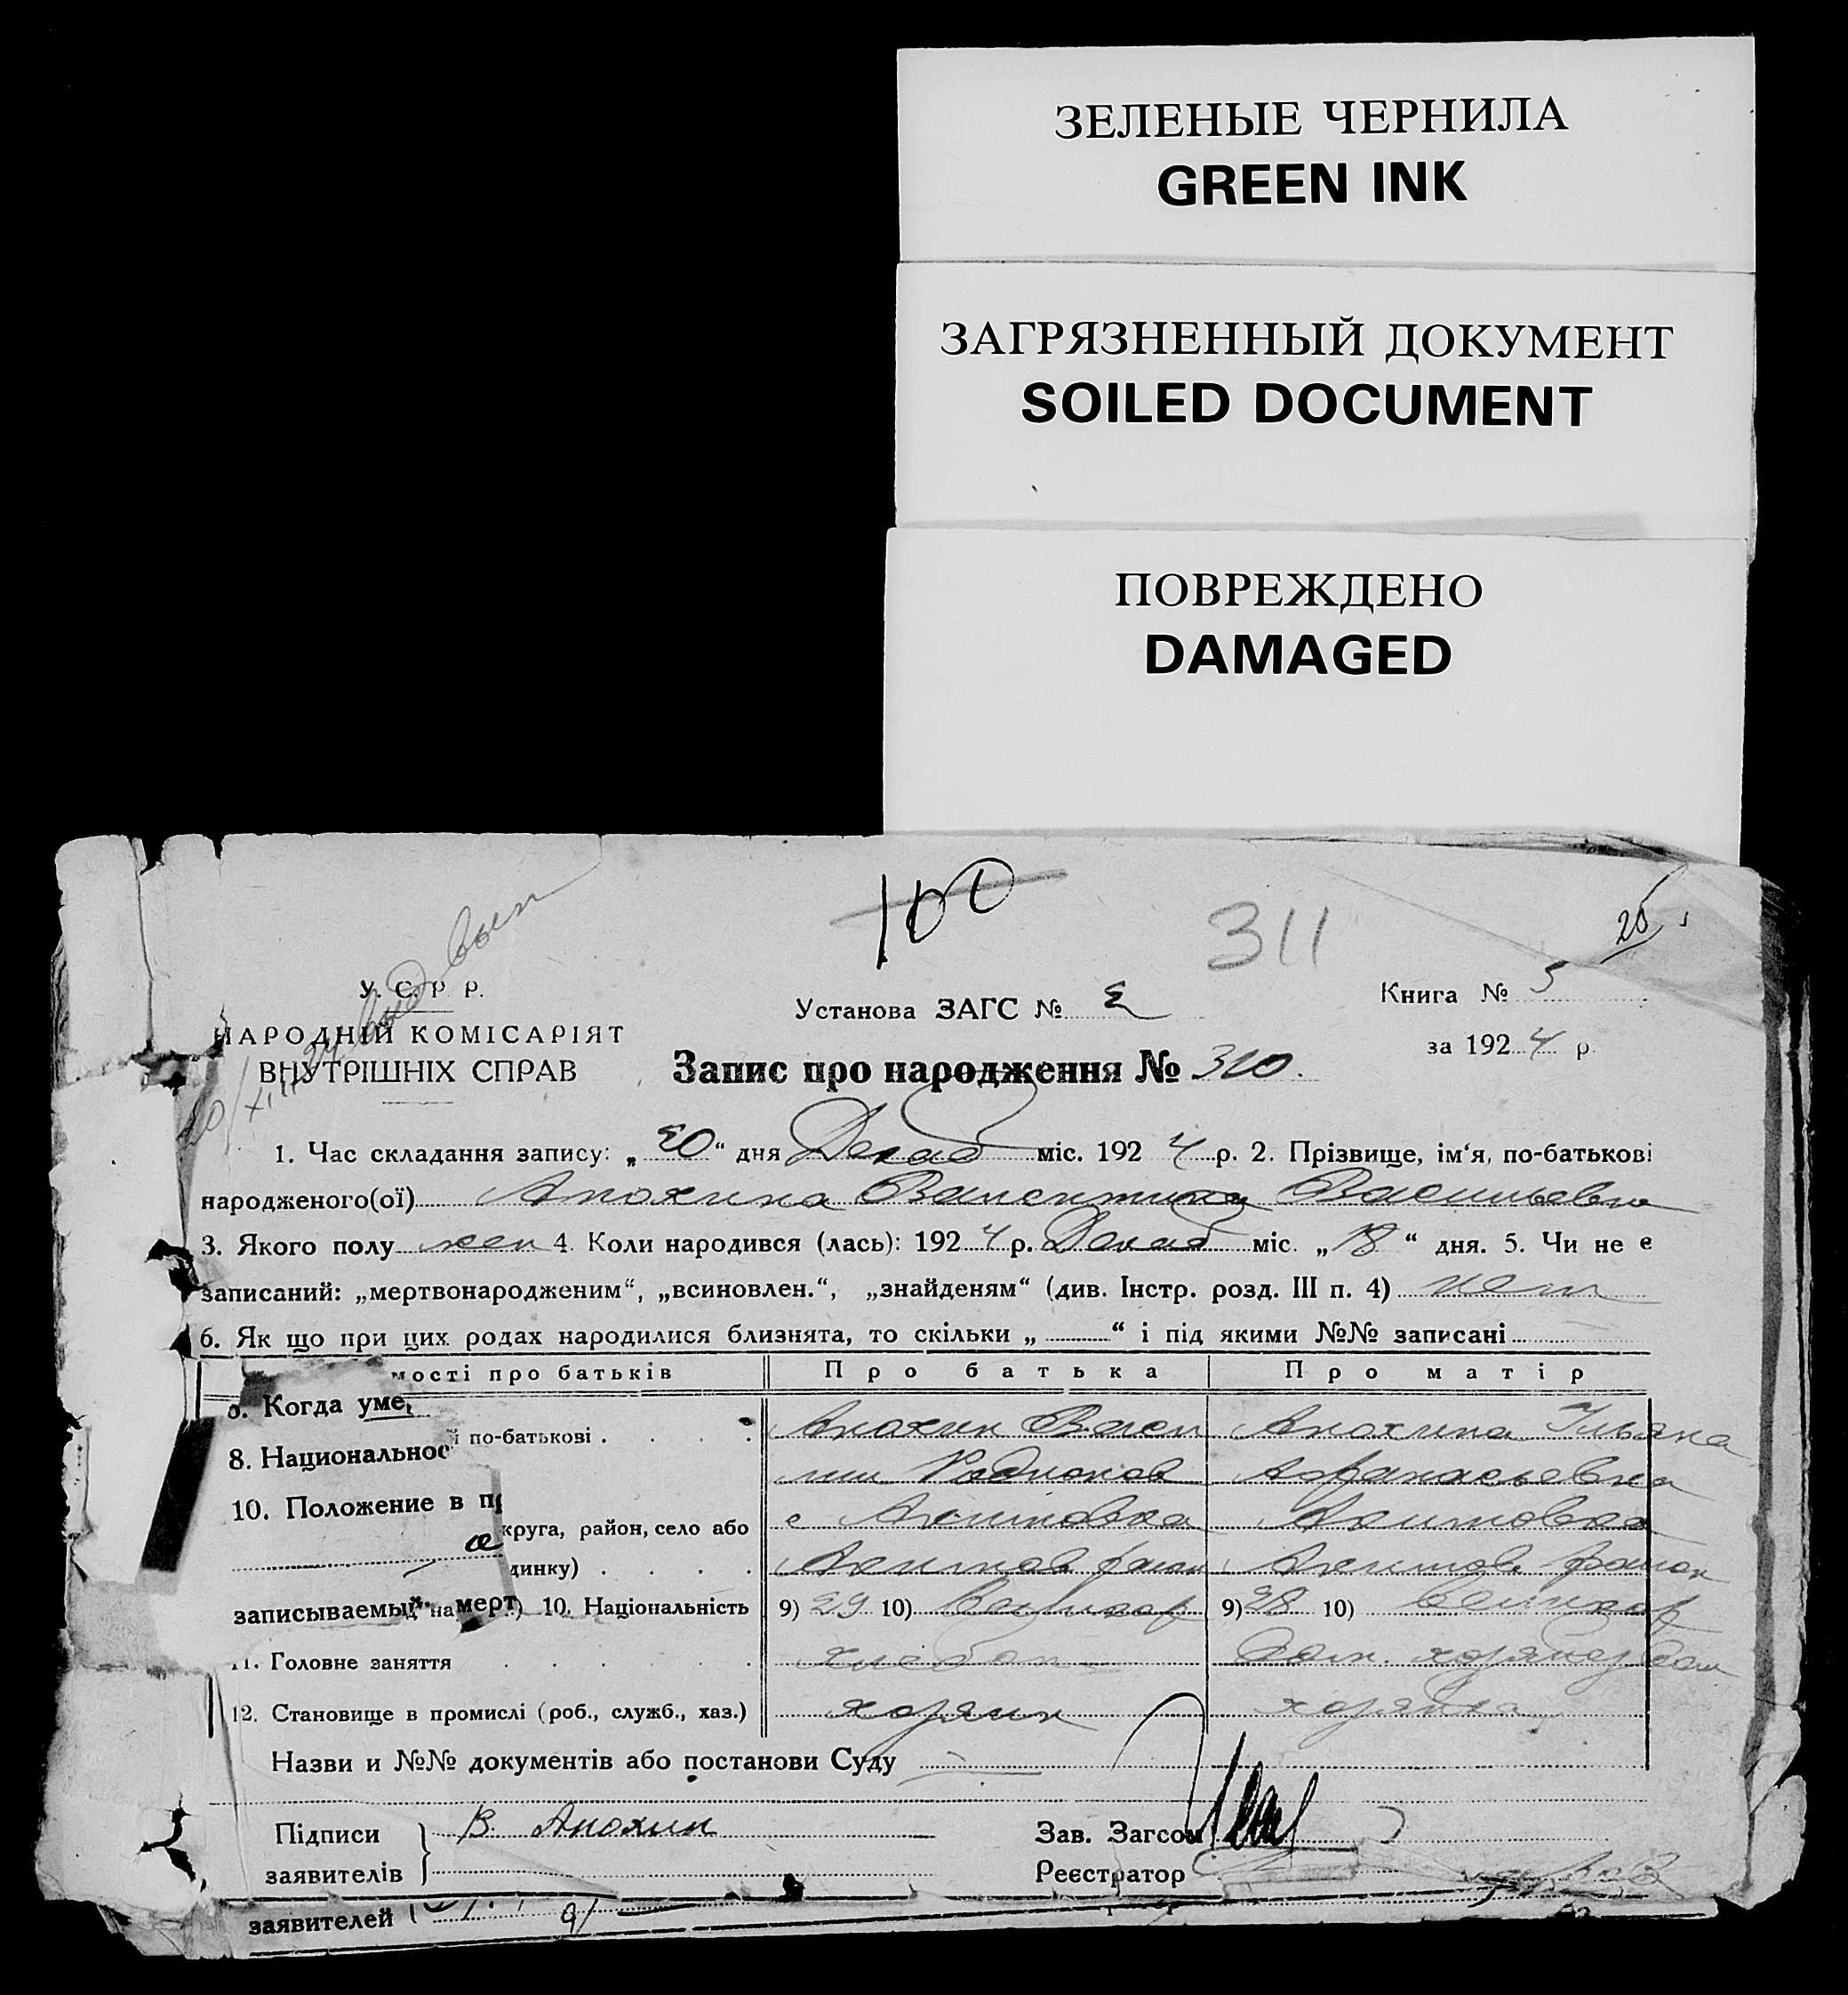 ЗЕЛЕНЫЕ ЧЕРНИЛА
GREEN INK
ЗАГРЯЗНЕННЫЙ ДОКУМЕНТ
SOILED DOCUMENT
ПОВРЕЖДЕНО
DAMAGED
100
311
20
У. С. Р. Р.
НАРОДНІЙ КОМІСАРІЯТ
ВНУТРІШНІХ СПРАВ
Установа ЗАГС №
Книга № 5
за 1924 р.
Запис про народження № 310.
1. Час складання запису: „20“ дня Декаб міс. 1924 р. 2. Прізвище, ім‘я, по-батькові
народженого(ої) Анохина Валентина Васильевна
3. Якого полу жен 4. Коли народився (лась): 1924 р. Декаб міс. „18“ дня. 5. Чи не є
записаний: „мертвонародженим“, „всиновлен.“, „знайденям“ (див. Інстр. розд. III п. 4) нет
6. Як що при цих родах народилися близнята, то скільки „ “ і під якими №№ записані
мості про батьків Про батька Про матір
Когда уме
й по-батькові Анохин Васи Анохина Ульяна
8. Национальнос
лий Родионов Афанасьевна
10. Положение в п
круга, район, село або с Акимовка Акимовка
динку) Акимов район Акимов район
записываемый на мерт) 10. Національність 9) 29 10) Великор 9) 28 10) Великор
11. Головне заняття хлебоп
12. Становище в промислі (роб., служб., хаз.) хозяин хозяйка
Назви и №№ документів або постанови Суду
Підписи
заявителів
В. Анохин
Зав. Загсом
Реєстратор
заявителей